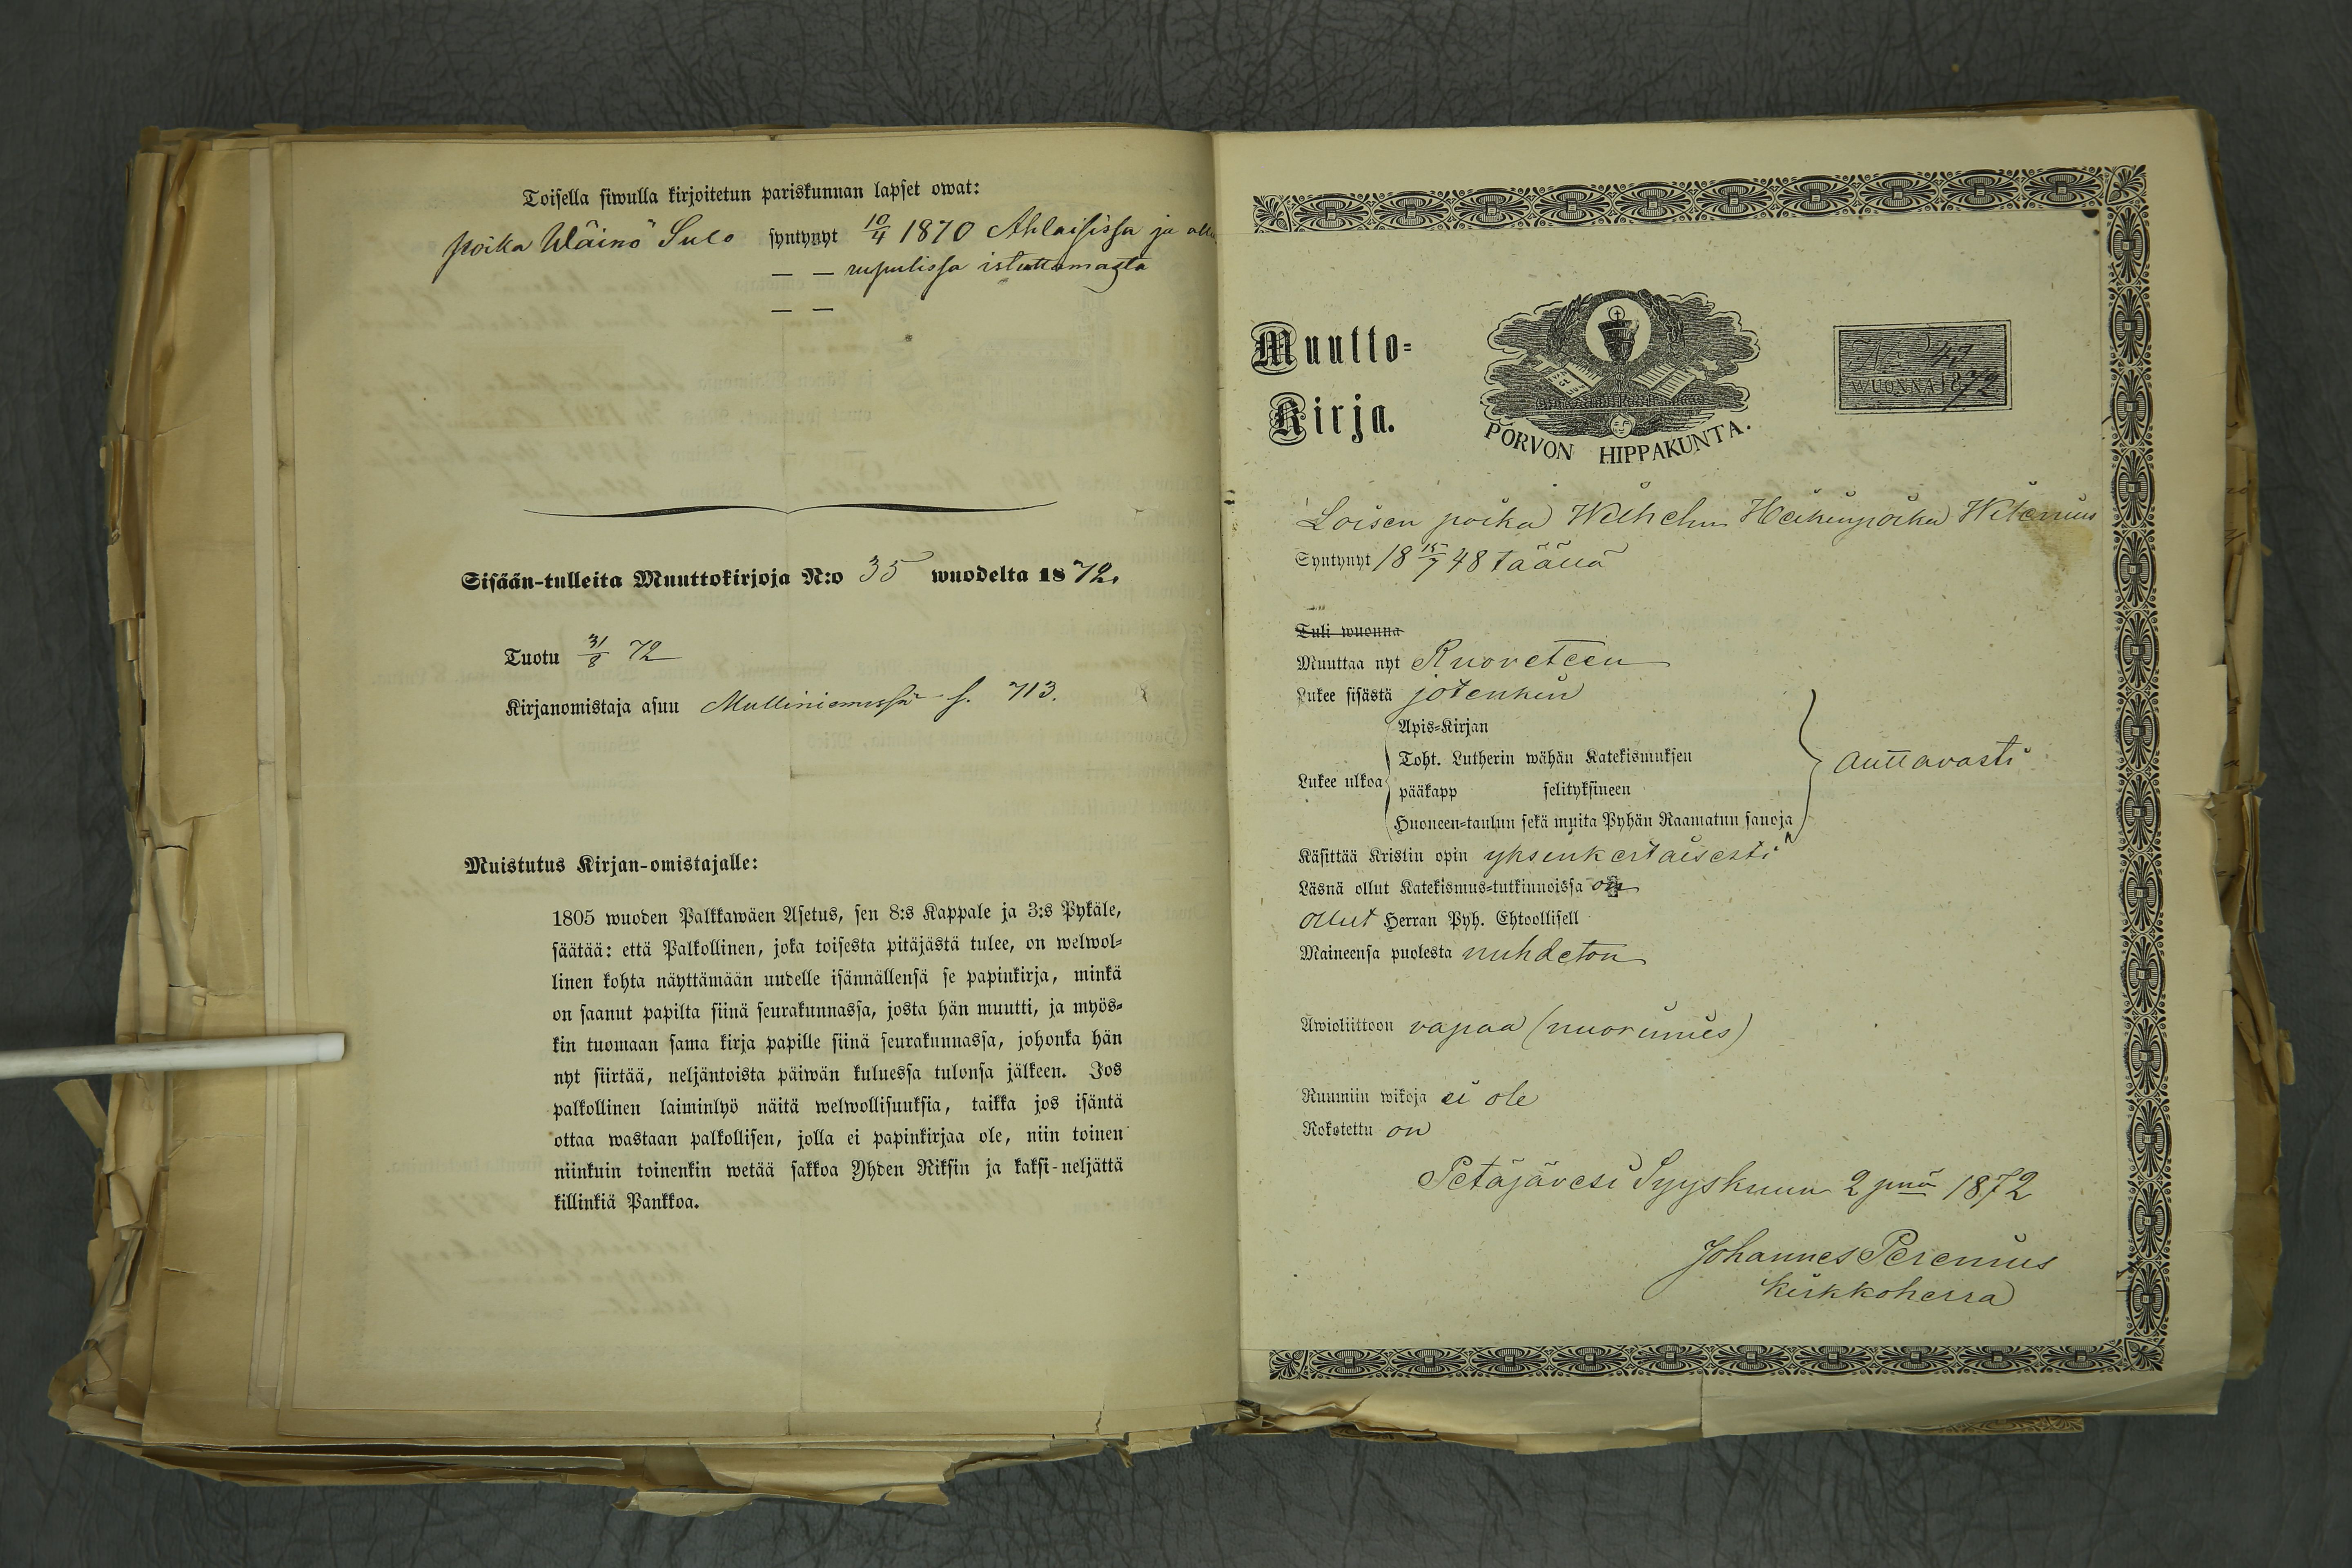 Toisella siwulla kirjoitetun pariskunnan lapset owat:
poika Wäinö Sulo syntynyt 10/4 1870 Ahlaisissa ja
— — rupulissa istuttamazta
— —
Sisään-tulleita Muuttokirjoja N:o 35 wuodelta 1872.
Tuotu 31/8 72
Kirjanomistaja asuu Mulliniemessä s. 713.
Muistutus Kirjan-omistajalle:
1805 wuoden Palkkawäen Asetus, sen 8:s Kappale ja 3:s Pykäle,
säätää: että Palkollinen, joka toisesta pitäjästä tulee, on welwol-
linen kohta näyttämään uudelle isännällensä se papinkirja, minkä
on saanut papilta siinä seurakunnassa, josta hän muutti, ja myös-
kin tuomaan sama kirja papille siinä seurakunnassa, johonka hän
nyt siirtää, neljäntoista päiwän kuluessa tulonsa jälkeen. Jos
palkollinen laiminlyö näitä welwollisuuksia, taikka jos isäntä
ottaa wastaan palkollisen, jolla ei papinkirjaa ole, niin toinen
niinkuin toinenkin wetää sakkoa Yhden Riksin ja kaksi-neljättä
killinkiä Pankkoa.
Muutto-
Kirja.
PORVON HIPPAKUNTA.
N:o 47
WUONNA 1872
Loisen poika Wilhelm Heikinpoika Witenius
Syntynyt 18 15/7 48 täällä
Tuli wuonna
Muuttaa nyt Ruoveteen
Lukee sisästä jotenkin
Lukee ulkoa
Apis-Kirjan
Toht. Lutherin wähän Katekismuksen
pääkapp selityksineen
Huoneen-taulun sekä muita Pyhän Raamatun sanoja
auttavasti
Käsittää Kristin opin yksinkertaisesti
Läsnä ollut Katekismus-tutkinnoissa on
ollut Herran Pyh. Ehtoollisell
Maineensa puolesta nuhdeton
Awioliittoon vapaa (nuorimies)
Ruumiin wikoja ei ole
Rokotettu on
Petäjävesi Syyskuun 2 pnä 1872
Johannes Perenius
Kirkkoherra